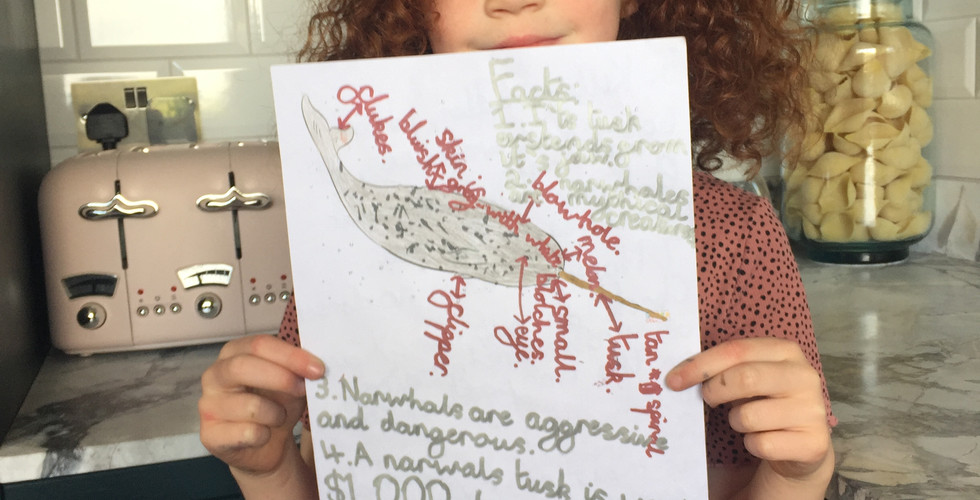 Facts:
1. I to tusk
extends from
it's jaw.
2. narwhales
are mythical
creature
flukes.
skin is
bluish grey with white
blotches.
blowhole.
melon
small.
eye.
flipper.
tusk.
tan
spiral
3. Narwhals are aggressive
and dangerous.
4. A narwals tusk is
$1,000